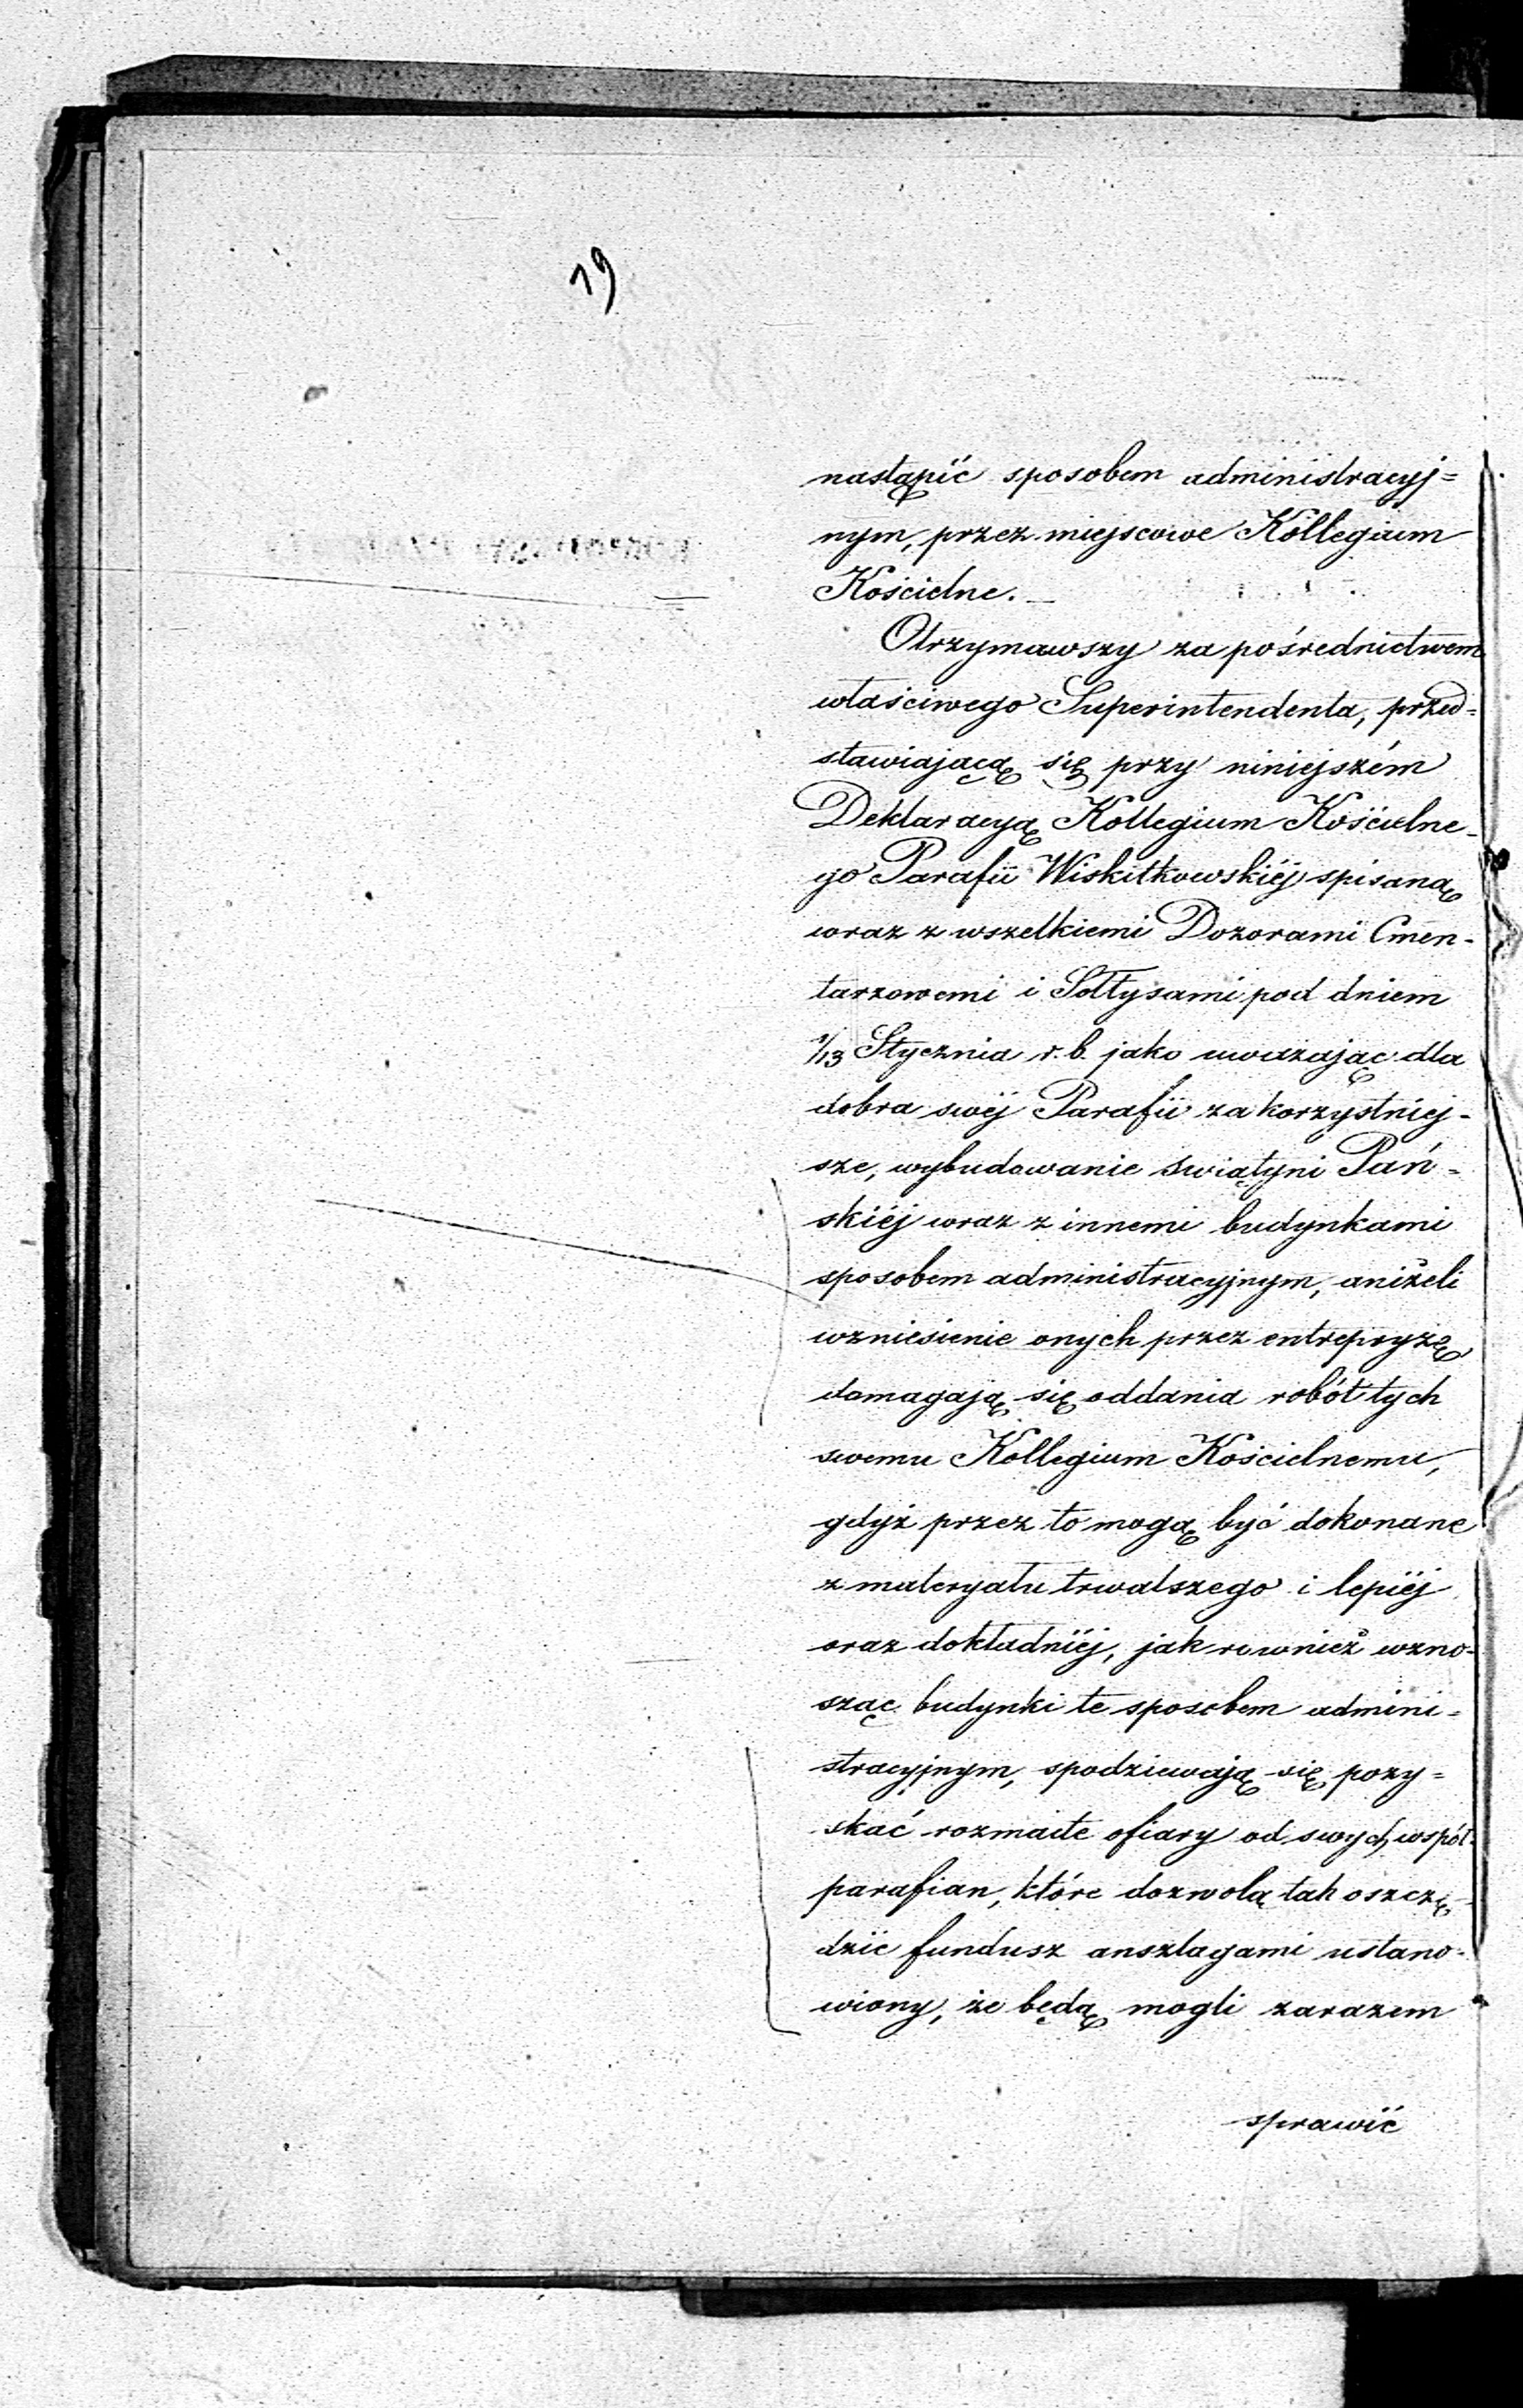 19
nastąpić sposobem administracyj=
nym, przez miejscowe Kollegium
Kościelne.
Otrzymawszy za pośrednictwem
właściwego Superintendenta, przed=
stawiającą się przy niniejszém
Deklaracyą Kollegium Kościelne-
go Parafii Wiskitkowskiéj spisaną
wraz z wszelkiemi Dozorami Cmen-
tarzowemi i Sołtysami pod dniem
1/13 Stycznia r. b. jako uważając dla
dobra swéj Parafii za korzystniej-
sze, wybudowanie świątyni Pań-
skiéj wraz z innemi budynkami
sposobem administracyjnym, aniżeli
wzniesienie onych przez entrepryzę
domagają się oddania robót tych
swemu Kollegium Kościelnemu,
gdyż przez to mogą być dokonane
z materyału trwalszego i lepiéj
oraz dokładniéj, jak rownież wzno-
sząc budynki te sposobem admini=
stracyjnym, spodziewają się pozy=
skać rozmaite ofiary od swych współ-
parafian, które dozwolą tak oszczę-
dzić fundusz anszlagami ustano-
wiony, że będą mogli zarazem
sprawić